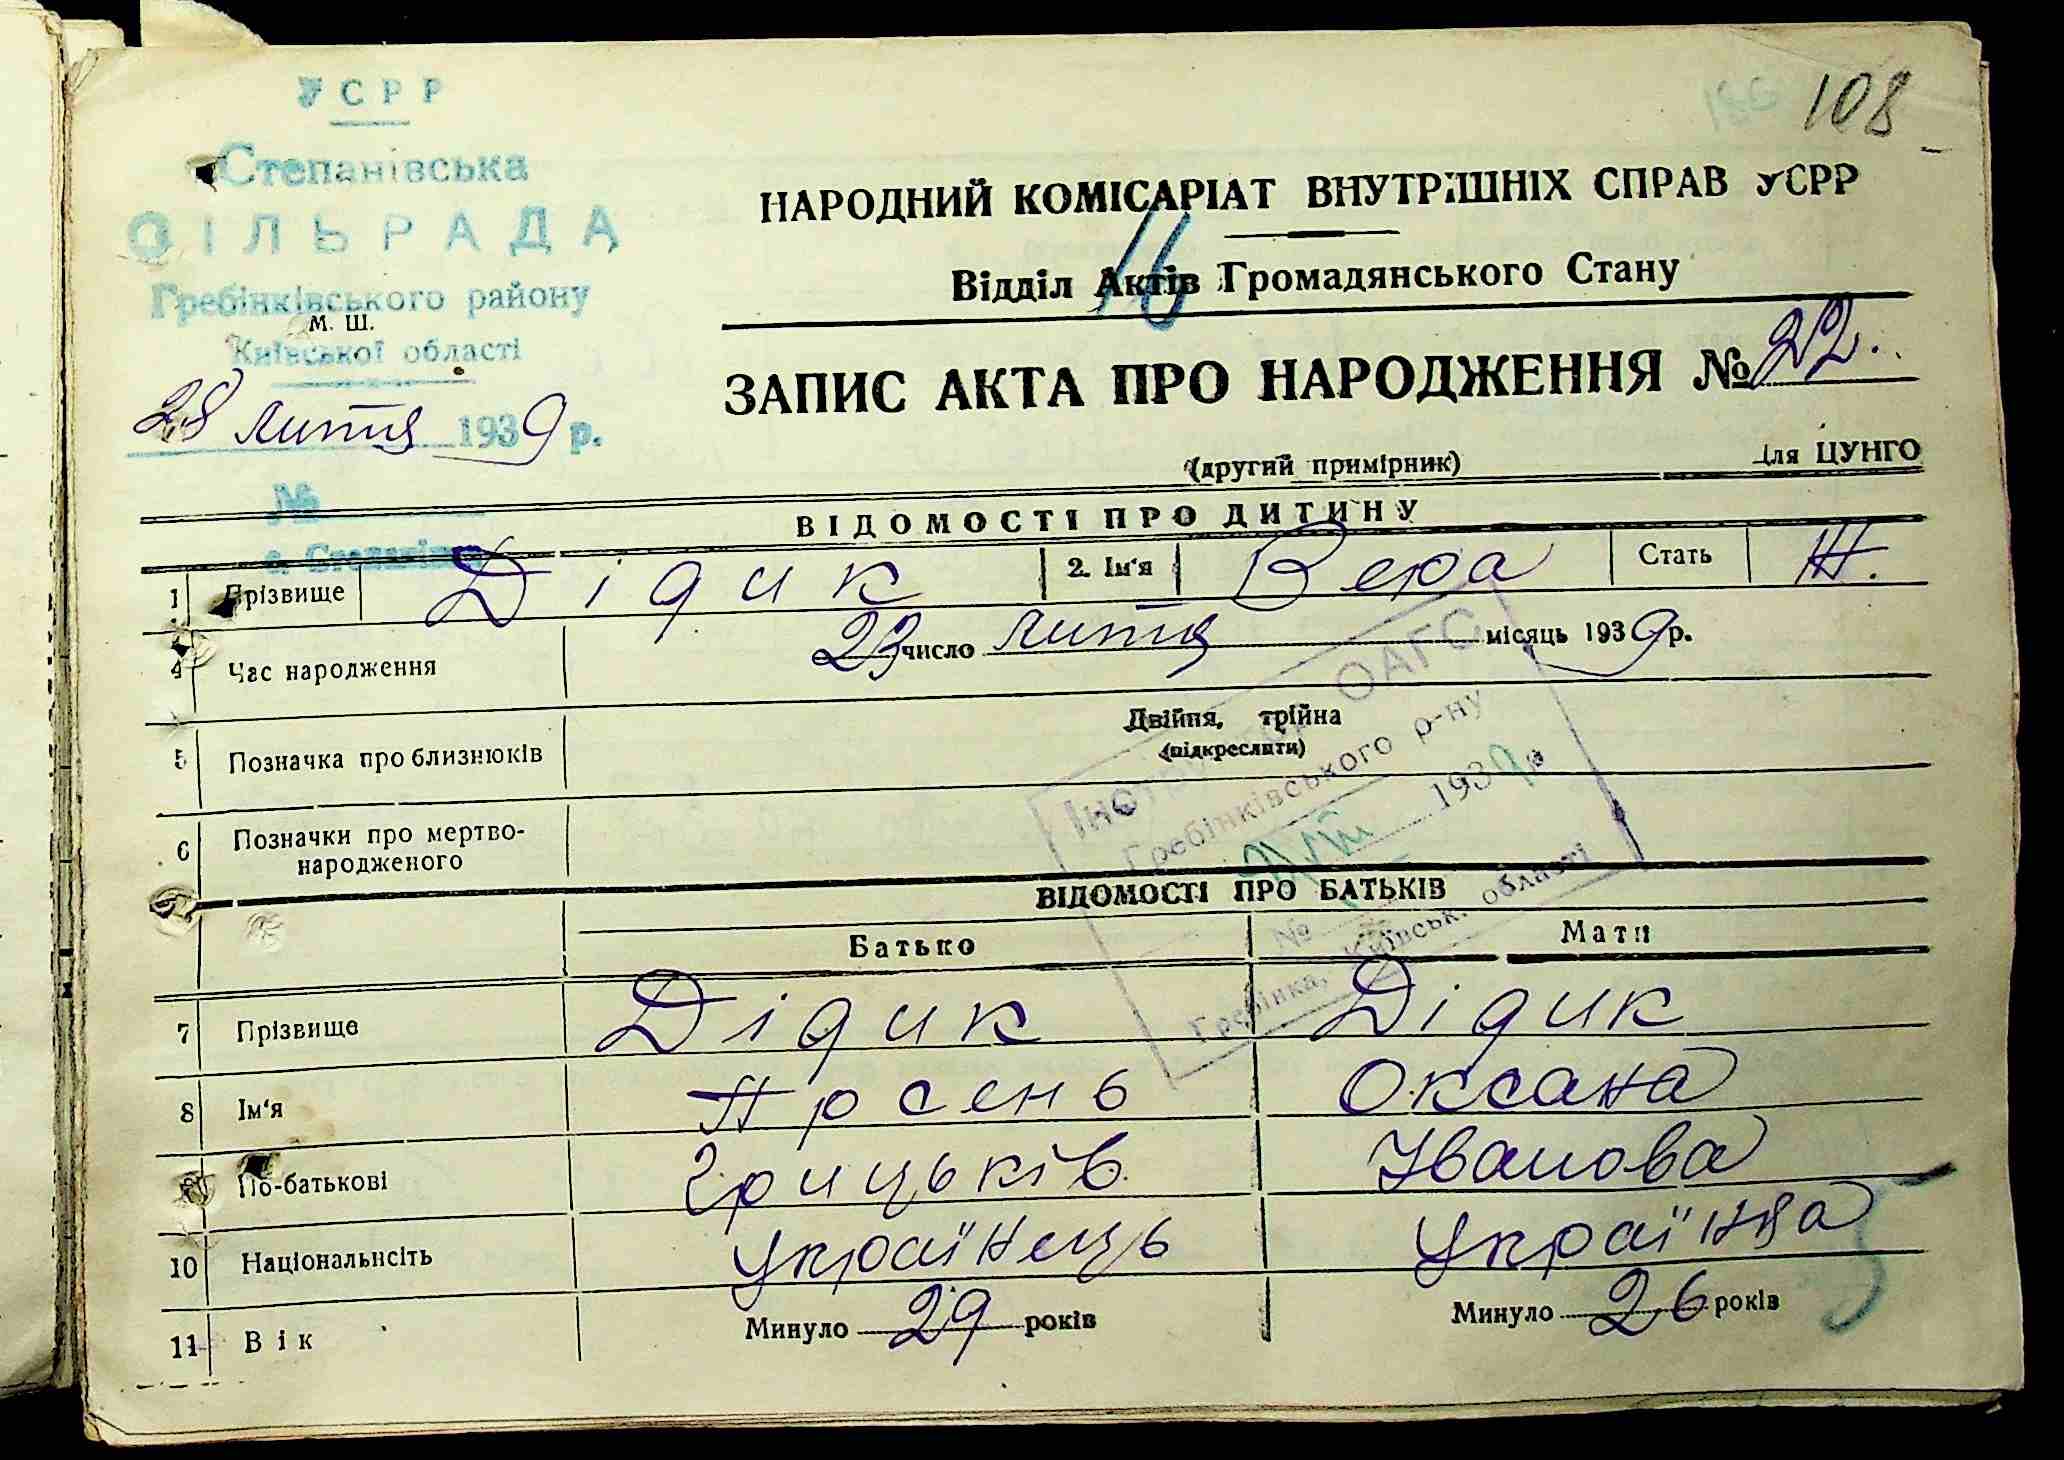 УСРР
Степанівська
СІЛЬРАДА
Гребінківського району
М. Ш.
Київської області
28 лютня 1939 р.
№
с. Степанівка
108
НАРОДНИЙ КОМІСАРІАТ ВНУТРІШНІХ СПРАВ УСРР
16
Відділ Актів Громадянського Стану
ЗАПИС АКТА ПРО НАРОДЖЕННЯ № 22.
(другий примірник) Для ЦУНГО
ВІДОМОСТІ ПРО ДИТИНУ
1 Прізвище Дідик 2. Ім'я Вера Стать Ж.
4 Час народження 23 число лютня місяць 1939 р.
5 Позначка про близнюків Двійня, трійна
(підкреслити)
6 Позначки про мертво-
народженого
Інструктор ОАГС
Гребінківського р-ну
1939 р
№
Гребінка, Київськ. області
ВІДОМОСТІ ПРО БАТЬКІВ
Батько Мати
7 Прізвище Дідик Дідик
8 Ім'я Арсень Оксана
9 По-батькові Грицьків Іванова
10 Національність Українець Українка
11 Вік Минуло 29 років Минуло 26 років